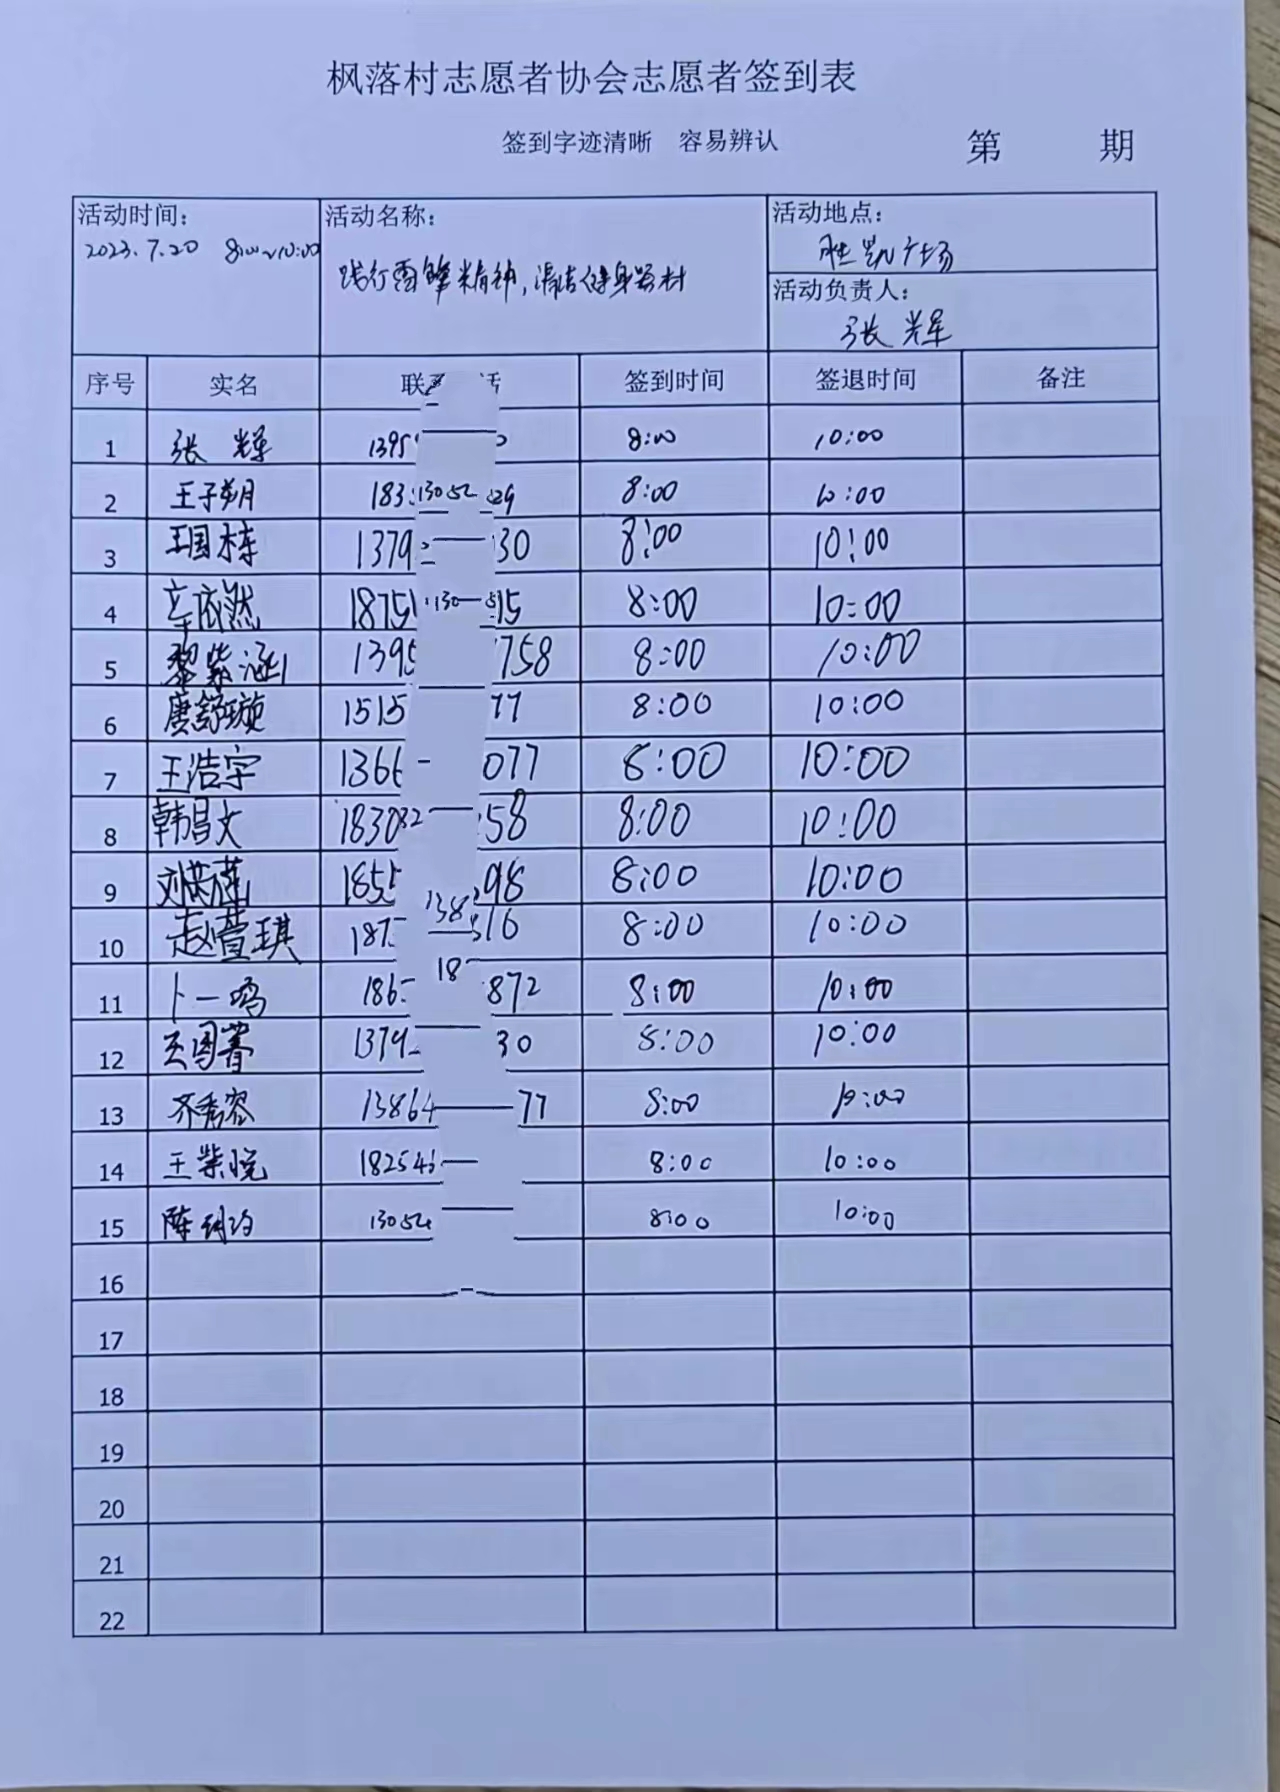 枫落村志愿者协会志愿者签到表
签到字迹清晰 容易辨认 第 期
活动时间: 活动名称: 活动地点:
2023.7.20 8:00~10:00 践行雷锋精神,清洁健身器材 胜凯广场
活动负责人:
张辉
序号 实名 联 话 签到时间 签退时间 备注
1 张辉 1395 8:00 10:00
2 王子朔 183 13052 29 8:00 10:00
3 王国栋 1379 30 8:00 10:00
4 辛依然 1875 130 15 8:00 10:00
5 黎紫涵 1395 758 8:00 10:00
6 唐舒璇 1515 77 8:00 10:00
7 王浩宇 1366 077 8:00 10:00
8 韩昌文 1830 58 8:00 10:00
9 刘洪莲 1855 98 8:00 10:00
10 赵萱琪 187 138 16 8:00 10:00
11 卜一鸣 186 18 872 8:00 10:00
12 王国蕃 1379 30 8:00 10:00
13 齐秀容 13864 77 8:00 10:00
14 王紫悦 18254 8:00 10:00
15 陈 13052 8:00 10:00
16
17
18
19
20
21
22